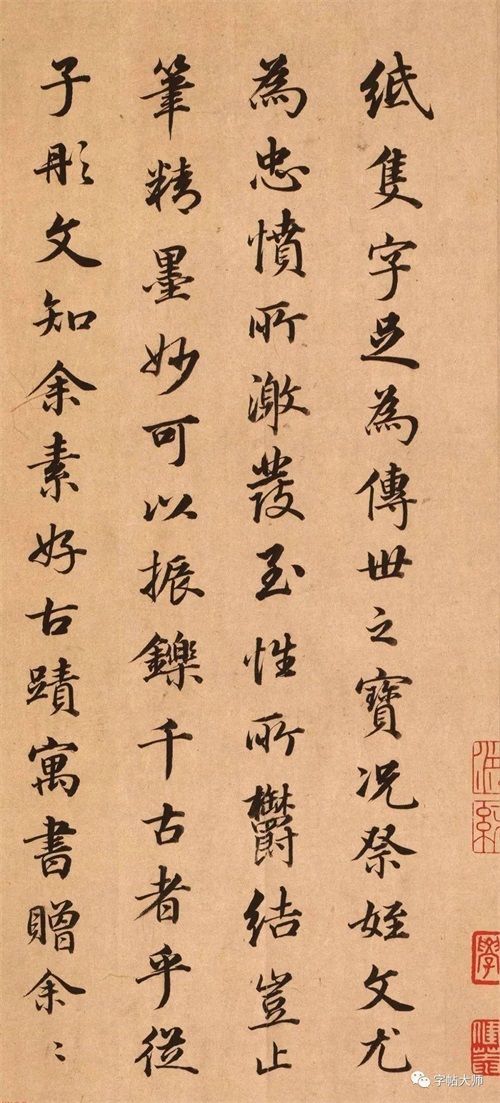 紙隻字足為傳世之寶况祭姪文尤
為忠憤所激發至性所鬱結豈止
筆精墨妙可以振鑠千古者乎從
子彤文知余素好古蹟寓書贈余〻
字帖大师